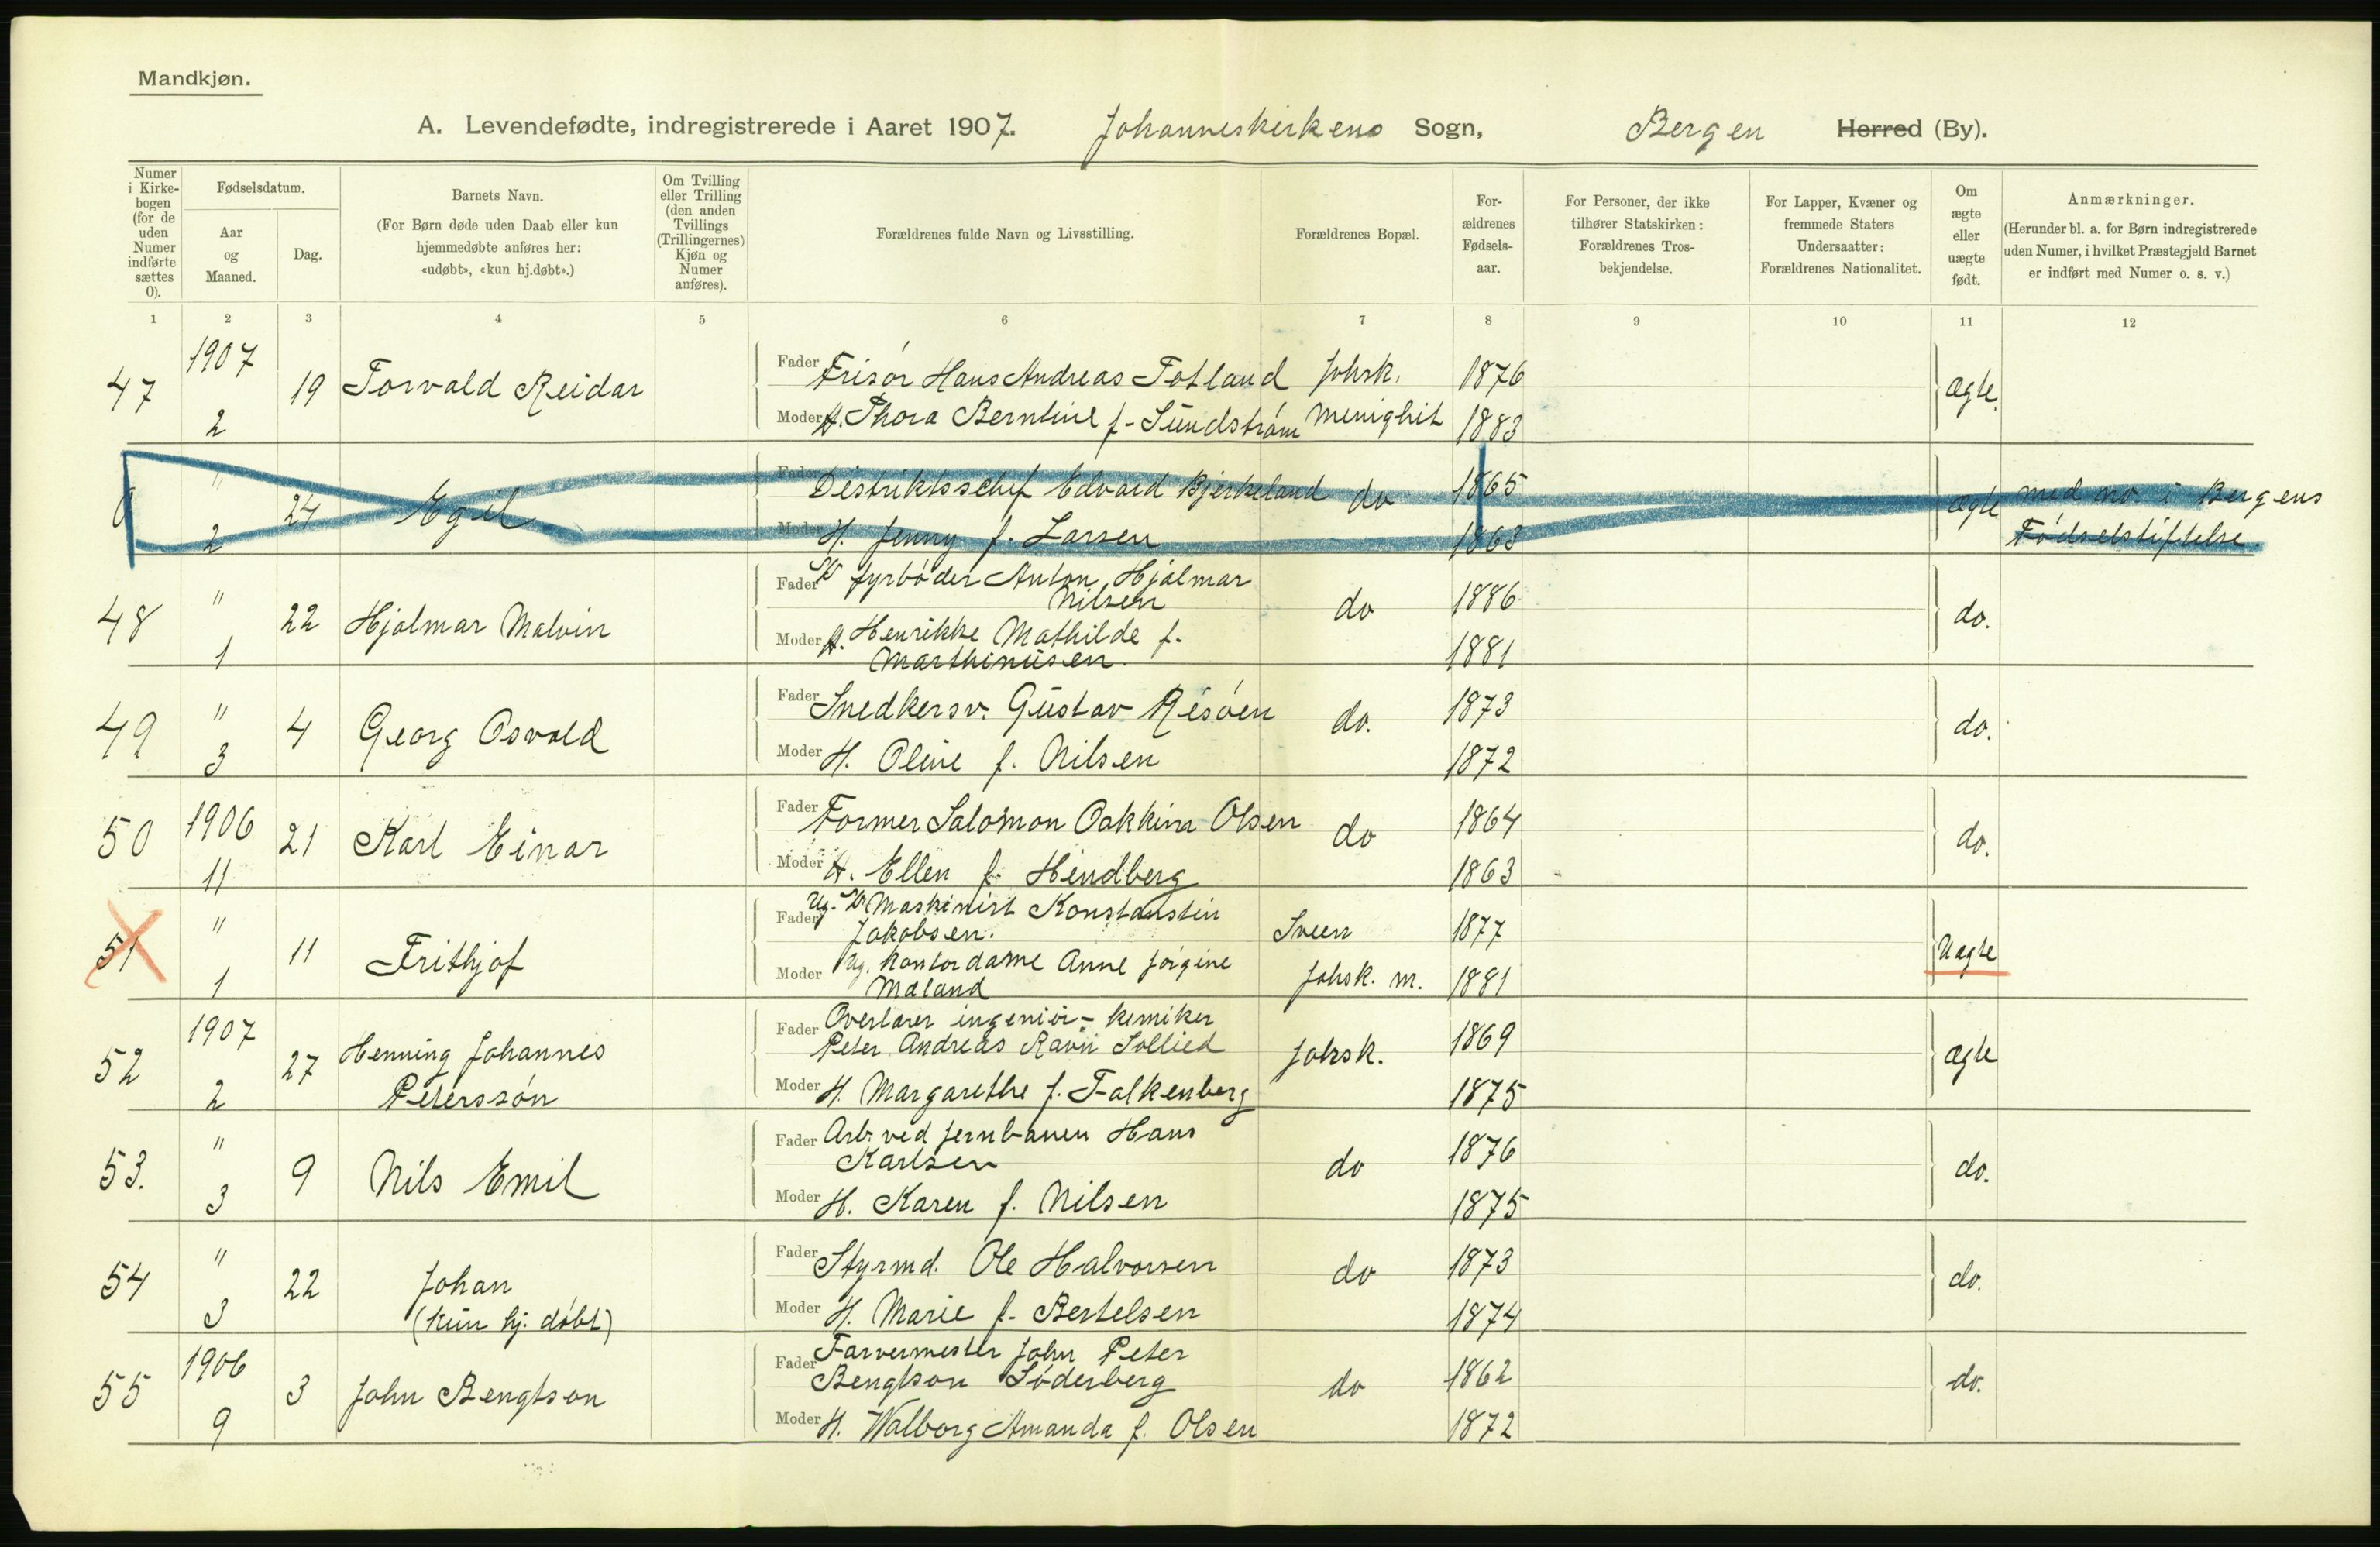 Mandkjøn.
A. Levendefødte, indregistrerede i Aaret 1907. Johanneskirkens Sogn, Bergen Herred (By).
Numer i Kirke-bogen (for de uden Numer indførte sættes 0).
Fødselsdatum.
Aar og Maaned.
Dag.
Barnets Navn.
(For Børn døde uden Daab eller kun hjemmedøbte anføres her: «udøbt», «kun hj.døbt».)
Om Tvilling eller Trilling (den anden Tvillings (Trillingernes) Kjøn og Numer anføres).
Forældrenes fulde Navn og Livsstilling.
Forældrenes Bopæl.
For-ældrenes Fødsels-aar.
For Personer, der ikke tilhører Statskirken: Forældrenes Tros-bekjendelse.
For Lapper, Kvæner og fremmede Staters Undersaatter: Forældrenes Nationalitet.
Om ægte eller uægte født.
Anmærkninger.
(Herunder bl. a. for Børn indregistrerede uden Numer, i hvilket Præstegjeld Barnet er indført med Numer o. s. v.)
1 2 3 4 5 6 7 8 9 10 11 12
47 1907 2 19 Torvald Reidar
Fader Frisør Hans Andreas Totland Johsk. 1876 ægte.
Moder H. Thora Berntine f. Sundstrøm Menighit 1883
0 " 2 24 Egil
Fader Distriktsschef Edvard Bjerkeland do 1865 ægte med no i Bergens
Moder H. Jenny f. Larsen 1863 Fødselstiftelse.
48 " 1 22 Hjalmar Malvin
Fader Sk fyrbøder Anton Hjalmar
Nilsen do 1886 do.
Moder H. Henrikke Mathilde f.
Marthinusen. 1881
49 " 3 4 Georg Osvald
Fader Snedkersv. Gustav Risøen do. 1873 do.
Moder H. Oline f. Nilsen 1872
50 1906 11 21 Karl Einar
Fader Former Salomon Oakkim Olsen do 1864 do.
Moder H. Ellen f. Hindberg 1863
51 " 1 11 Frithjof
Fader Ug. Sk Maskinist Konstanstin
Jakobsen. Sveen 1877 Uægte
Moder Ug. Kontordame Anne Jørgine
Mæland Johsk. m. 1881
52 1907 2 27 Henning Johannes
Peterssøn
Fader Overlærer ingeniør - kemiker
Peter Andreas Ravn Sollied Johsk. 1869 ægte
Moder H. Margarethe f. Falkenberg 1875
53. " 3 9 Nils Emil
Fader Arb. ved jernbanen Hans
Karlsen do 1876 do.
Moder H. Karen f. Nilsen 1875
54 " 3 22 Johan
(kun hj. døbt)
Fader Styrmd. Ole Halvorsen do 1873 do.
Moder H. Marie f. Bertelsen 1874
55 1906 9 3 John Bengtson
Fader Farvermester John Peter
Bengtson Søderberg do 1862 do.
Moder H. Walborg Amanda f. Olsen 1872